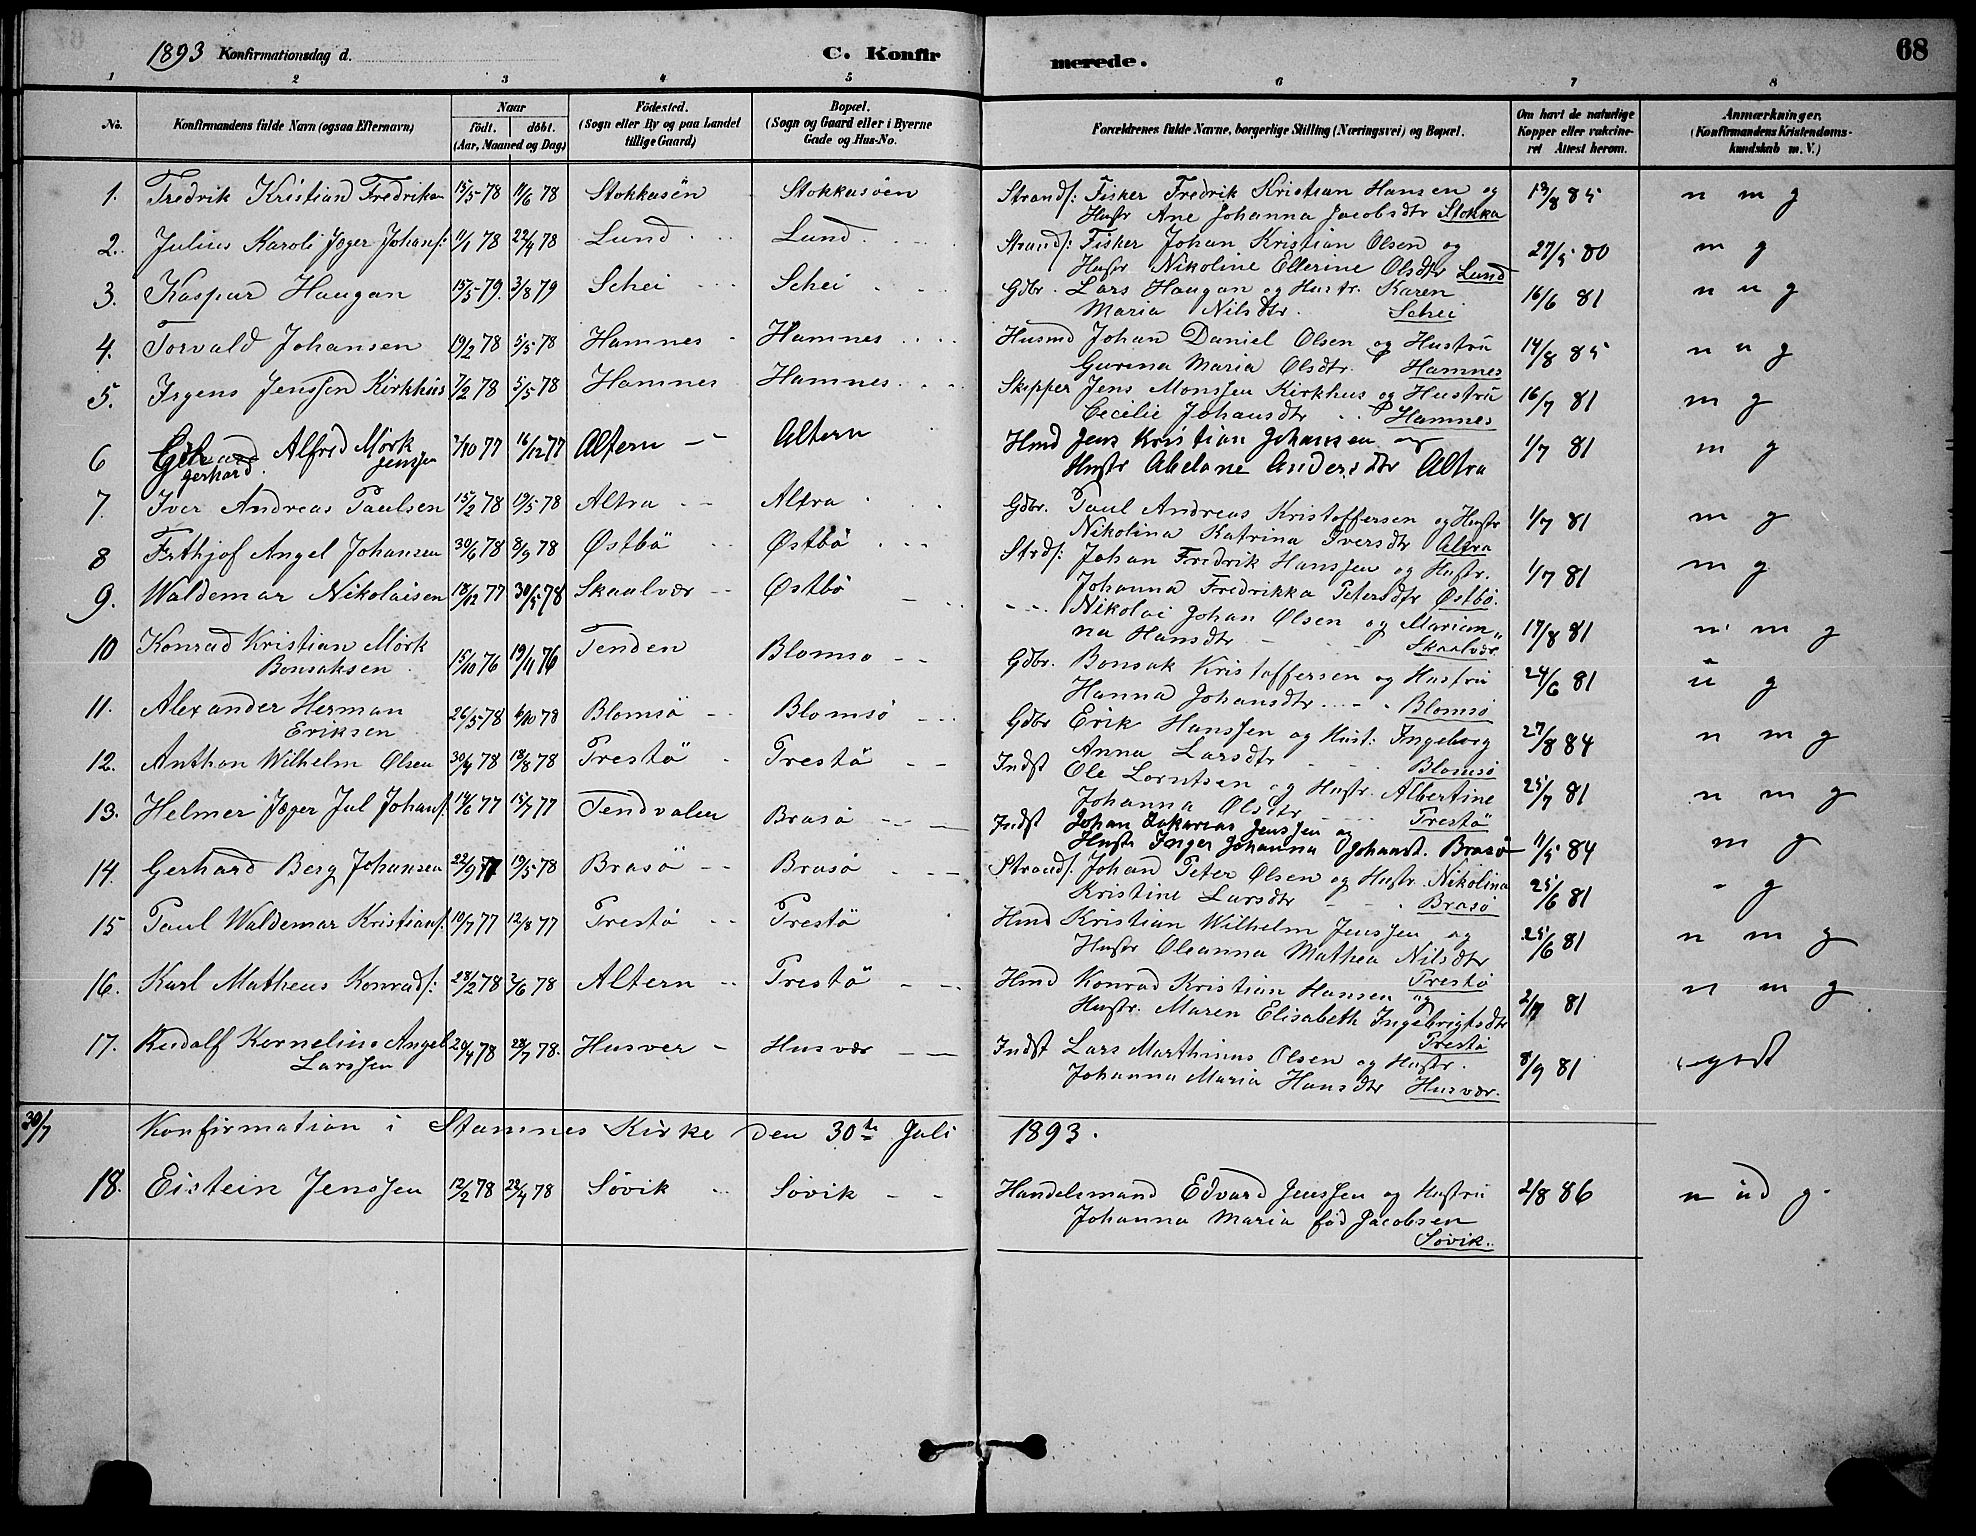 1893 Konfirmationsdag d. C. Konfirmerede. 68
1 2 3 4 5 6 7 8
No. Konfirmandens fulde Navn (ogsaa Efternavn) Naar født. døbt. (Aar, Maaned og Dag) Födested. (Sogn eller By og paa Landet tillige Gaard) Bopæl. (Sogn og Gaard eller i Byerne Gade og Hus-No. Forældrenes fulde Navne, borgerlige Stilling (Næringsvei) og Bopæl. Om havt de naturlige Kopper eller vakcineret Attest herom. Anmærkninger. (Konfirmandens Kristendomskundskab m. V.)
1. Fredrik Kristian Fredriksen 15/5 78 11/6 78 Stokkasöen Stokkasöen Strands: Fisker Fredrik Kristian Hansen og 13/8 85 n m g
Hustr Ane Johanna Jacobsdtr Stokka
2. Julius Karoli Jæger Johans: 11/1 78 22/4 78 Lund Lund Strands: Fisker Johan Kristian Olsen og 27/5 80 m g
Hustr Nikoline Ellerine Olsdtr Lund
3. Kaspar Haugan 15/5 79. 3/8 79 Schei Schei Gdbr. Lars Haugan og Hustr. Karen 16/6 81 n u g
Maria Nilsdtr. Schei
4. Torvald Johansen 19/2 78 5/5 78 Hamnes Hamnes Husmd Johan Daniel Olsen og Hustru 14/8 85 n u g
Gurina Maria Olsdtr. Hamnes
5. Irgens Jenssen Kirkhus 7/2 78 5/5 78 Hamnes Hamnes Skipper Jens Monssen Kirkhus og Hustru 16/7 81 m g
Cecilie Johansdtr Hamnes
6 Alfred Mörk Jenssen 7/10 77 16/12 77 Altern Altern Hmd Jens Kristian Johansen og 1/7 81 m g
Gerhard. Hustr Abelone Andersdtr Altra
7. Iver Andreas Paulsen 15/2 78 19/5 78 Altra Altra Gdbr. Paul Andreas Kristoffersen og Hustr 1/7 81 m g
Nikolina Katrina Iversdtr Altra
8 Frthjof Angel Johansen 30/6 78 8/9 78 Østbö Østbö Strds: Johan Fredrik Hanssen og Hustr. 1/7 81 m g
Johanna Fredrikka Petersdtr Østbö.
9. Waldemar Nikolaisen 18/12 77 30/5 78 Skaalvær Østbö Nikolai Johan Olsen og Marian„ 17/8 81 n m g
na Hansdtr Skaalvær
10 Konrad Kristian Mörk Bonsaksen 15/10 76 19/11 76 Tenden Blomsö Gdbr. Bonsak Kristoffersen og Hustru 24/6 81 u g
Hanna Johansdtr Blomsö
11. Alexander Herman Eriksen 26/5 78 6/10 78 Blomsö Blomsö Gdbr Erik Hanssen og Hust: Ingeborg 27/8 84 n m g
Anna Larsdtr Blomsö
12. Anthon Wilhelm Olsen 30/4 78 18/8 78 Trestö Trestö Indst Ole Lorntsen og Hustr. Albertine 25/7 81 n m g
Johanna Olsdtr Trestö
13. Helmer Jæger Jul Johans: 14/6 77 15/7 77 Tendvalen Brasö Indst Johan Zakarias Jenssen og 11/5 84 m g
Hustr Inger Johanna Johansd. Brasö
14. Gerhard Berg Johansen 22/9 77 19/5 78 Brasö Brasö Strands: Johan Peter Olsen og Hustr. Nikolina 25/6 81 g
Kristine Larsdtr Brasö
15 Paul Waldemar Kristians: 10/7 77 12/8 77 Trestö Trestö Hmd Kristian Wilhelm Jenssen og 25/6 81 n m g
Hustr Oleanna Mathea Nilsdtr Trestö
16. Karl Matheus Konrads: 28/2 78 2/6 78 Altern Trestö Hmd Konrad Kristian Hansen og 2/7 81 n m g
Hustr. Maren Elisabeth Ingebrigtsdtr Trestö
17. Rudolf Kornelius Angel Larssen 20/4 78 28/7 78. Husver Husvær Indst Lars Marthinus Olsen og Hustr. 8/9 81 godt
Johanna Maria Hansdtr Husvær.
30/7 Konfirmation i Stamnes Kirke den 30te Juli 1893.
18. Eistein Jenssen 12/2 78 22/4 78 Søvik Søvik Handelsmand Edvard Jenssen og Hustru 2/8 86 g.
Johanna Maria fød Jacobsen
Søvik.